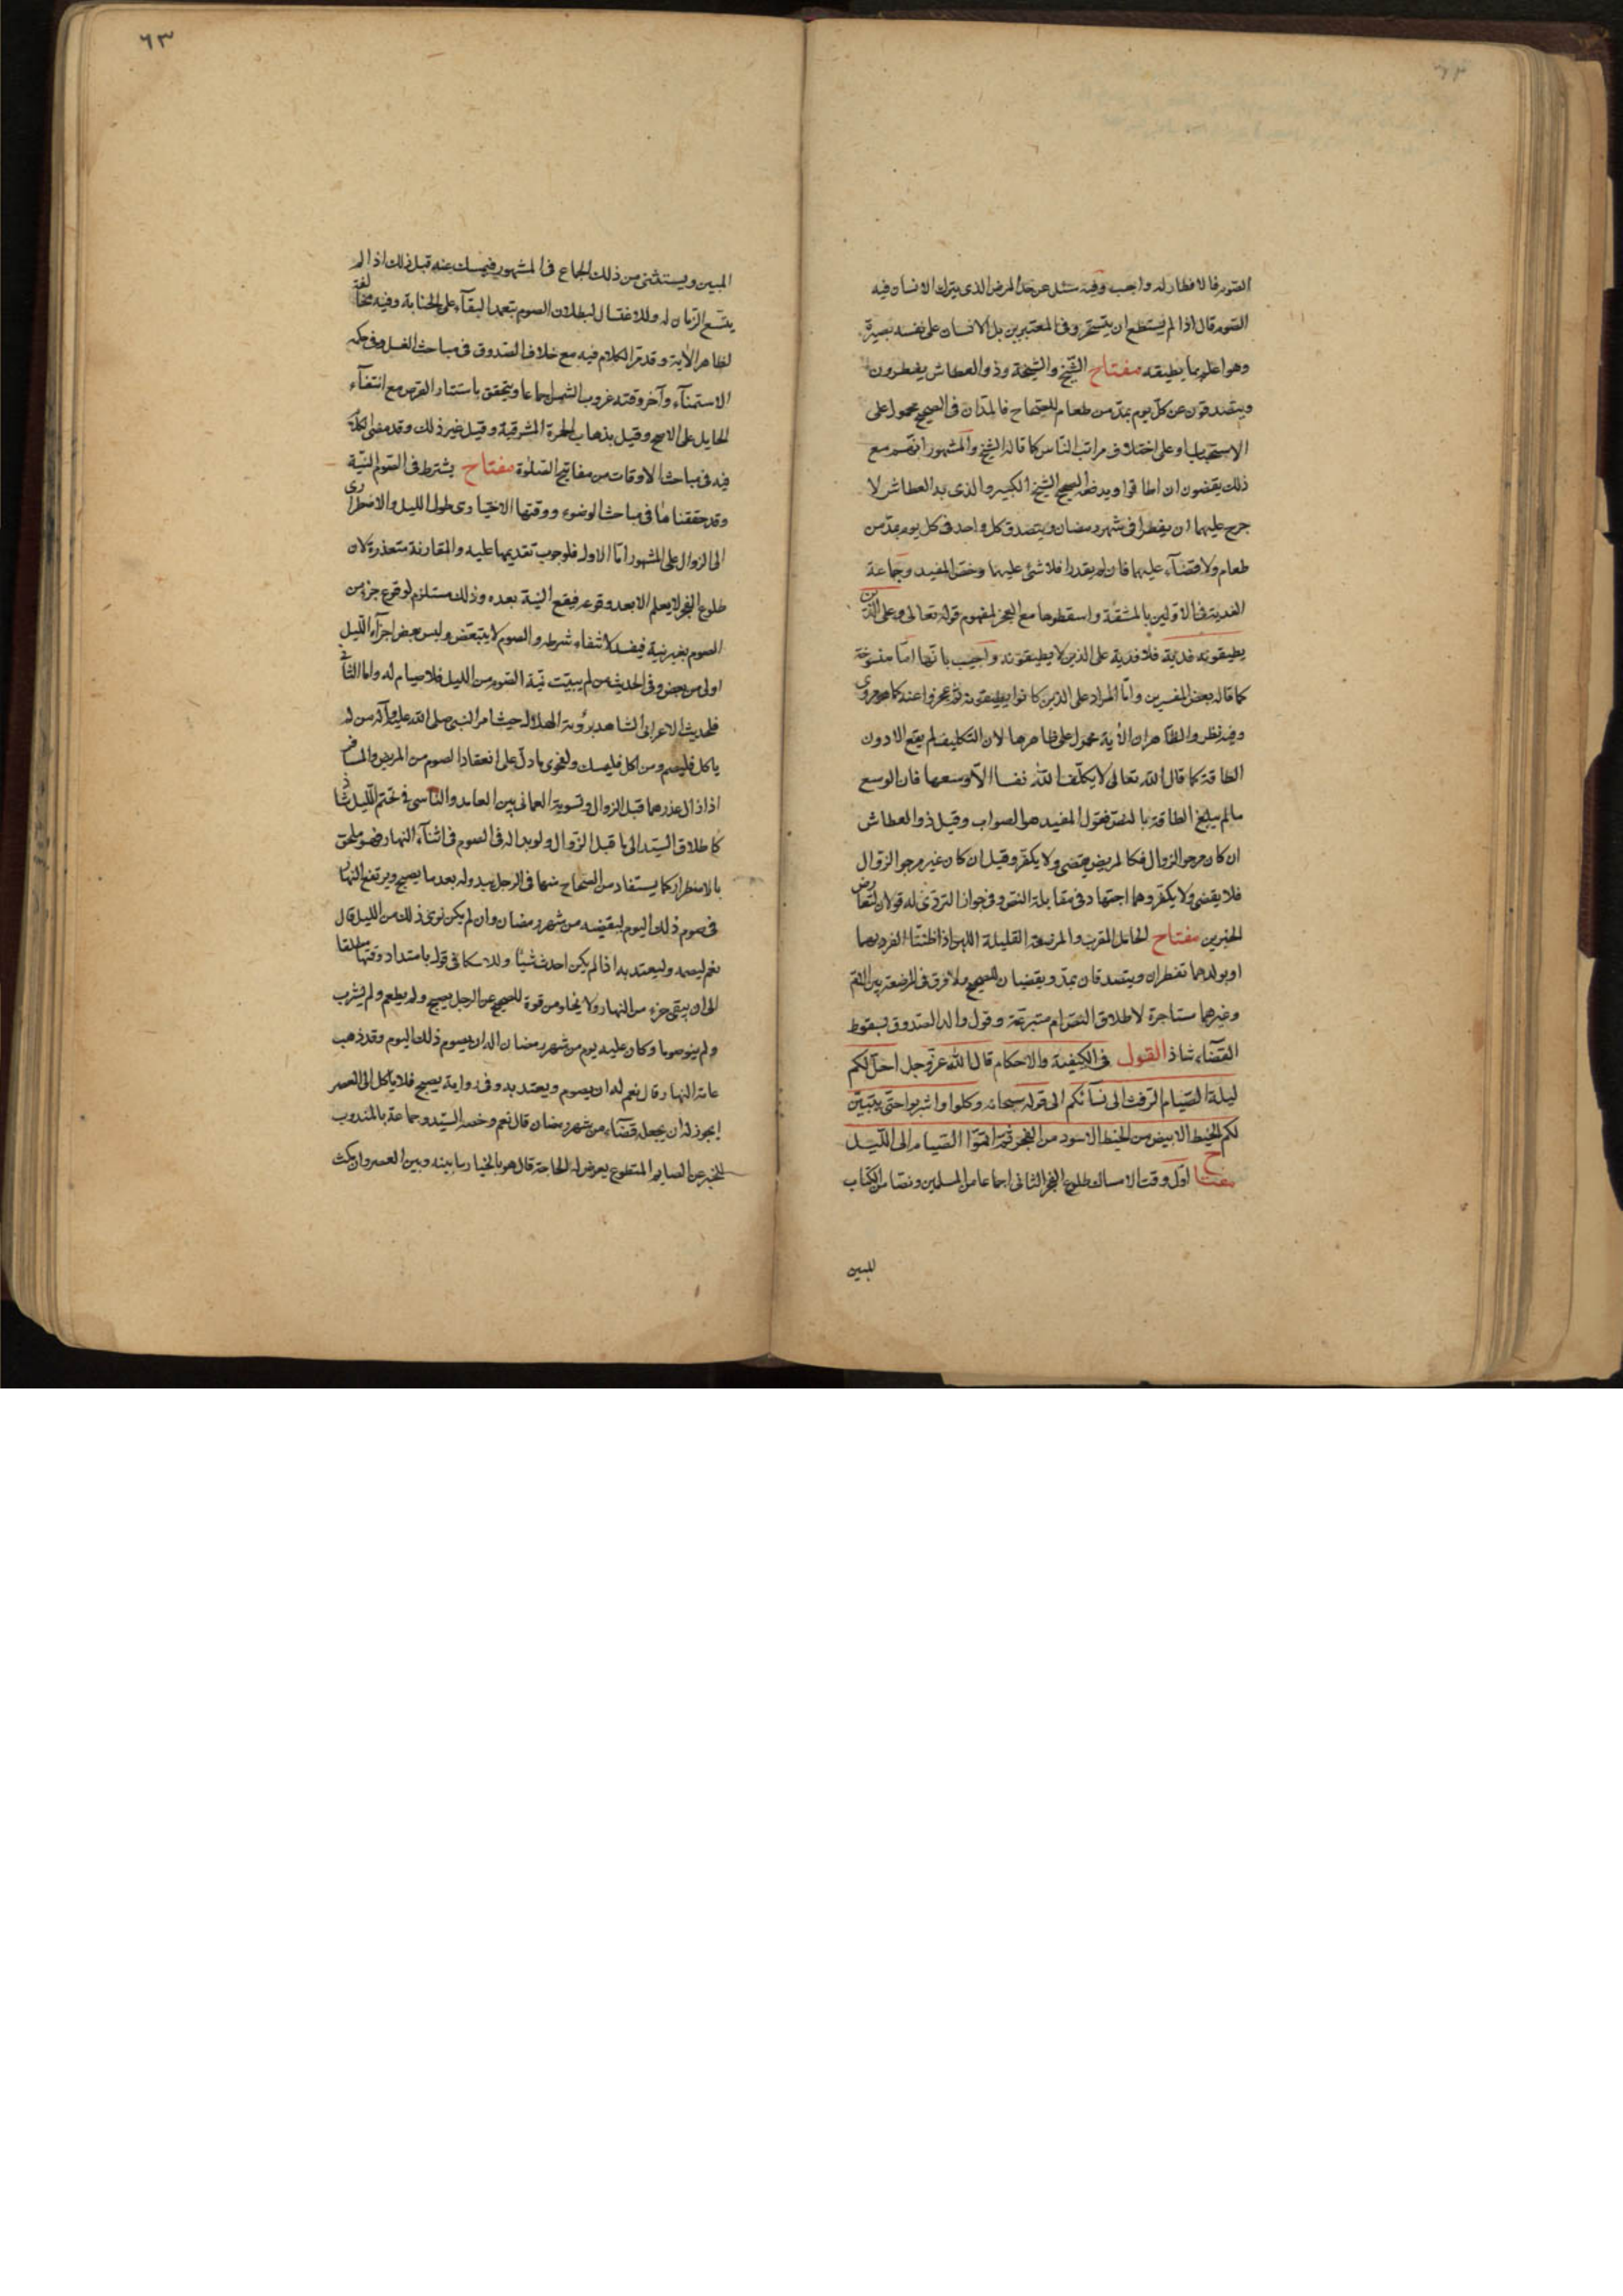 الصوم فالافطار له واجب وفيه سئل عن حد المرض الذى يترك الانسان فيه
الصوم قال اذا لم يستطع ان يتسحر وفى المعتبرين بل الانسان على نفسه بصيرة
وهو اعلم بما يطيقه مفتاح الشيخ والشيخة وذو العطاش يفطرون
ويتصدقون عن كل يوم بمد من طعام للصحاح فالمدان فى الصحيح محمول على
الاستحباب او على اختلاف مراتب الناس كما قاله الشيخ والمشهور انهم مع
ذلك يقضون ان اطاقوا ويدفعه الصحيح الشيخ الكبير والذى به العطاش لا
حرج عليهما ان يفطرا فى شهر رمضان ويتصدق كل واحد فى كل يوم بمد من
طعام ولا قضآء عليهما فان لم يقدرا فلا شئ عليهما وخص المفيد وجماعة
الفدية فى الاولين بالمشقة واسقطوها مع العجز لمفهوم قوله تعالى وعلى الذين
يطيقونه فدية فلا فدية على الذين لا يطيقونه واجيب بانها اما منسوخة
كما قاله بعض المفسرين واما المراد على الذين كانوا يطيقونه ثم عجزوا عنه كما هو مروى
وفيه نظر والظاهر ان الآية محمول على ظاهرها لان التكليف لم يقع الا دون
الطاقة كما قال الله تعالى لا يكلف الله نفسا الا وسعها فان الوسع
ما لم يبلغ الطاقة بالنص فقول المفيد هو الصواب وقيل ذو العطاش
ان كان مرجو الزوال فكالمريض يقضى ولا يكفر وقيل ان كان غير مرجو الزوال
فلا يقضى ولا يكفر وهما اجتهاد فى مقابلة النص وفى جواز التروى له قولان لتعارض
الخبرين مفتاح الحامل المقرب والمرضعة القليلة اللبن اذا ظنتا الضرر بهما
او بولدهما تفطران ويتصدقان بمد ويقضيان للصحيح ولا فرق فى المرضعة بين الام
وغيرهما مستاجرة لاطلاق النص ام متبرعة وقول والد الصدوق بسقوط
القضآء شاذ القول فى الكيفية والاحكام قال الله عز وجل احل لكم
ليلة الصيام الرفث الى نسآئكم الى قوله سبحانه وكلوا واشربوا حتى يتبين
لكم الخيط الابيض من الخيط الاسود من الفجر ثم اتموا الصيام الى الليل
مفتاح اول وقت الامساك طلوع الفجر الثانى اجماعا من المسلمين ونصا من الكتاب
المبين
٦٣
المبين ويستثنى من ذلك الجماع فى المشهور فيمسك عنه قبل ذلك اذا لم
يتسع الزمان له وللاغتسال لبطلان الصوم بتعمد البقآء على الجنابة وفيه مخالفة
لظاهر الآية وقد مر الكلام فيه مع خلاف الصدوق فى مباحث الغسل وفى حكمه
الاستمنآء وآخر وقته غروب الشمس اجماعا ويتحقق باستتار القرص مع انتفآء
الحايل على الاصح وقيل بذهاب الحمرة المشرقية وقيل غير ذلك وقد مضى الكلام
فيه فى مباحث الاوقات من مفاتيح الصلوة مفتاح يشترط فى الصوم النية
وقد حققناها فى مباحث الوضوء ووقتها الاختيارى طول الليل والاضطرارى
الى الزوال على المشهور اما الاول فلوجوب تقديمها عليه والمقارنة متعذرة لان
طلوع الفجر لا يعلم الا بعد وقوعه فيقع النية بعده وذلك مستلزم لوقوع جزء من
الصوم بغير نية فيفسد لانتفاء شرطه والصوم لا يتبعض وليس بعض اجزآء الليل
اولى من بعض وفى الحديث من لم يبيت نية الصوم من الليل فلا صيام له واما الثانى
فلحديث الاعرابى الشاهد برؤية الهلال حيث امر النبى صلى الله عليه وآله من لم
ياكل فليصم ومن اكل فليمسك ولفحوى ما دل على انعقاد الصوم من المريض والمسافر
اذا زال عذرهما قبل الزوال وتسوية العمانى بين العامد والناسى فى تحتم الليل شاذ
كاطلاق السيد الى ما قبل الزوال ولو بدا له فى الصوم فى اثنآء النهار فهو ملحق
بالاضطرار كما يستفاد من الصحاح منها فى الرجل يبدو له بعد ما يصبح ويرتفع النهار
فى صوم ذلك اليوم ليقضيه من شهر رمضان وان لم يكن نوى ذلك من الليل قال
نعم ليصمه وليعتد به اذا لم يكن احدث شيئا وللاسكافى قول بامتداد وقتها مطلقا
الى ان يبقى جزء من النهار ولا يخلو من قوة للصحيح عن الرجل يصبح ولم يطعم ولم يشرب
ولم ينو صوما وكان عليه يوم من شهر رمضان اله ان يصوم ذلك اليوم وقد ذهب
عامة النهار قال نعم له ان يصوم ويعتد به وفى رواية يصبح فلا ياكل الى العصر
ايجوز له ان يجعله قضآء من شهر رمضان قال نعم وخصه السيد وجماعة بالمندوب
للخبر عن الصايم المتطوع يعرض له الحاجة قال هو بالخيار ما بينه وبين العصر وان مكث